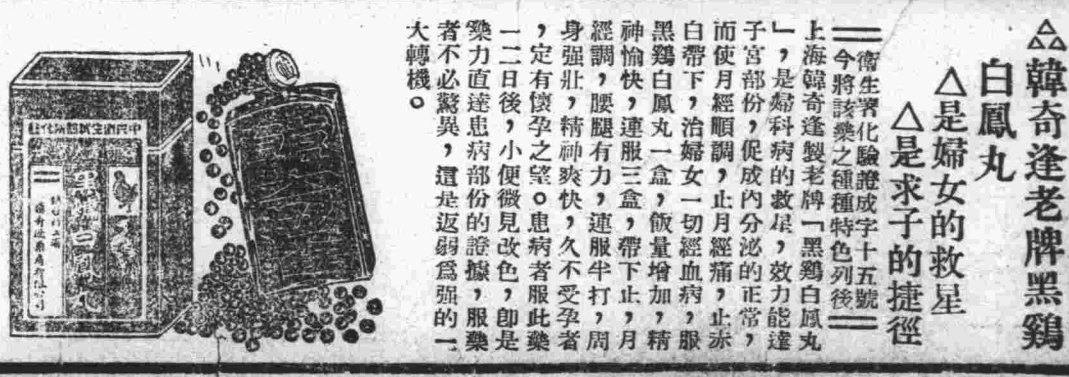 △△韓奇逢老牌黑鷄
白鳳丸
△是婦女的救星
△是求子的捷徑
衛生署化驗證成字十五號
今將該藥之種種特色列後
上海韓奇逢製老牌「黑鷄白鳳丸
」，是婦科病的救星，效力能達
子宮部份，促成內分泌的正常，
而使月經順調，止月經痛，止赤
白帶下，治婦女一切經血病，服
黑鷄白鳳丸一盒，飯量增加，精
神愉快，連服三盒，帶下止，月
經調，腰腿有力，連服半打，周
身强壯，精神爽快，久不受孕者
，定有懷孕之望。患病者服此藥
一二日後，小便微見改色，卽是
藥力直達患病部份的證據，服藥
者不必驚異，這是返弱爲强的一
大轉機。